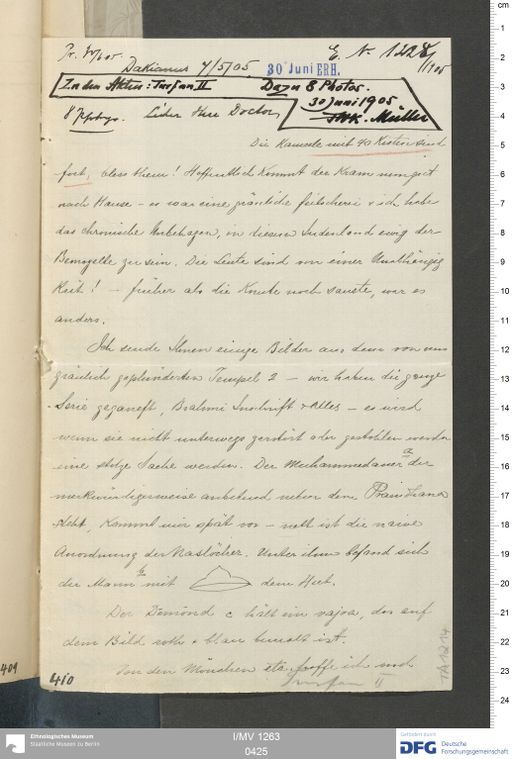 Dakianus 4/5/05
30 Juni ERH.
E. No 1228/1905
Zu den Akten: Turfan II
Dazu 8 Photos.
30 Juni 1905
FWK. Müller
Lieber Herr Doctor,
Die Karawele mit 40 Kisten sind
fort, bless them! Hoffentlich kommt der Kram nun gut
nach Hause – es war eine gräuliche + ich habe
das chronische Unbehagen, in diesem Sudenland ewig der
zu sein. Die Leute sind von einer Unabhängig
Keit! – früher als die Knute noch sauste, war es
anders.
Ich sende Ihnen einige Bilder aus dem von uns
gräulich geplünderten Tempel 2 – wir haben die ganze
Serie geganeft, Brahmi Inschrift + Alles – es wird
wenn sie nicht unterwegs zerstört oder gestohlen werden
eine stolze Sache werden. Der Muhammedaner a der
merkwürdigerweise anbetend neben dem
steht, kommt mir spät vor – nett ist die naive
Anordnung der Naslöcher. Unter ihm befand sich
der Mann b mit dem Hut.
Der Dämond c hält ein vajra, das auf
dem Bild roth + blau bemalt ist.
Von den Mönchen etc hoffe ich noch
Turfan II
TA 1214
409
410
cm
1
2
3
4
5
6
7
8
9
10
11
12
13
14
15
16
17
18
19
20
21
22
23
24
Ethnologisches Museum
Staatliche Museen zu Berlin
I/MV 1263
0425
Gefördert durch
DFG Deutsche
Forschungsgemeinschaft